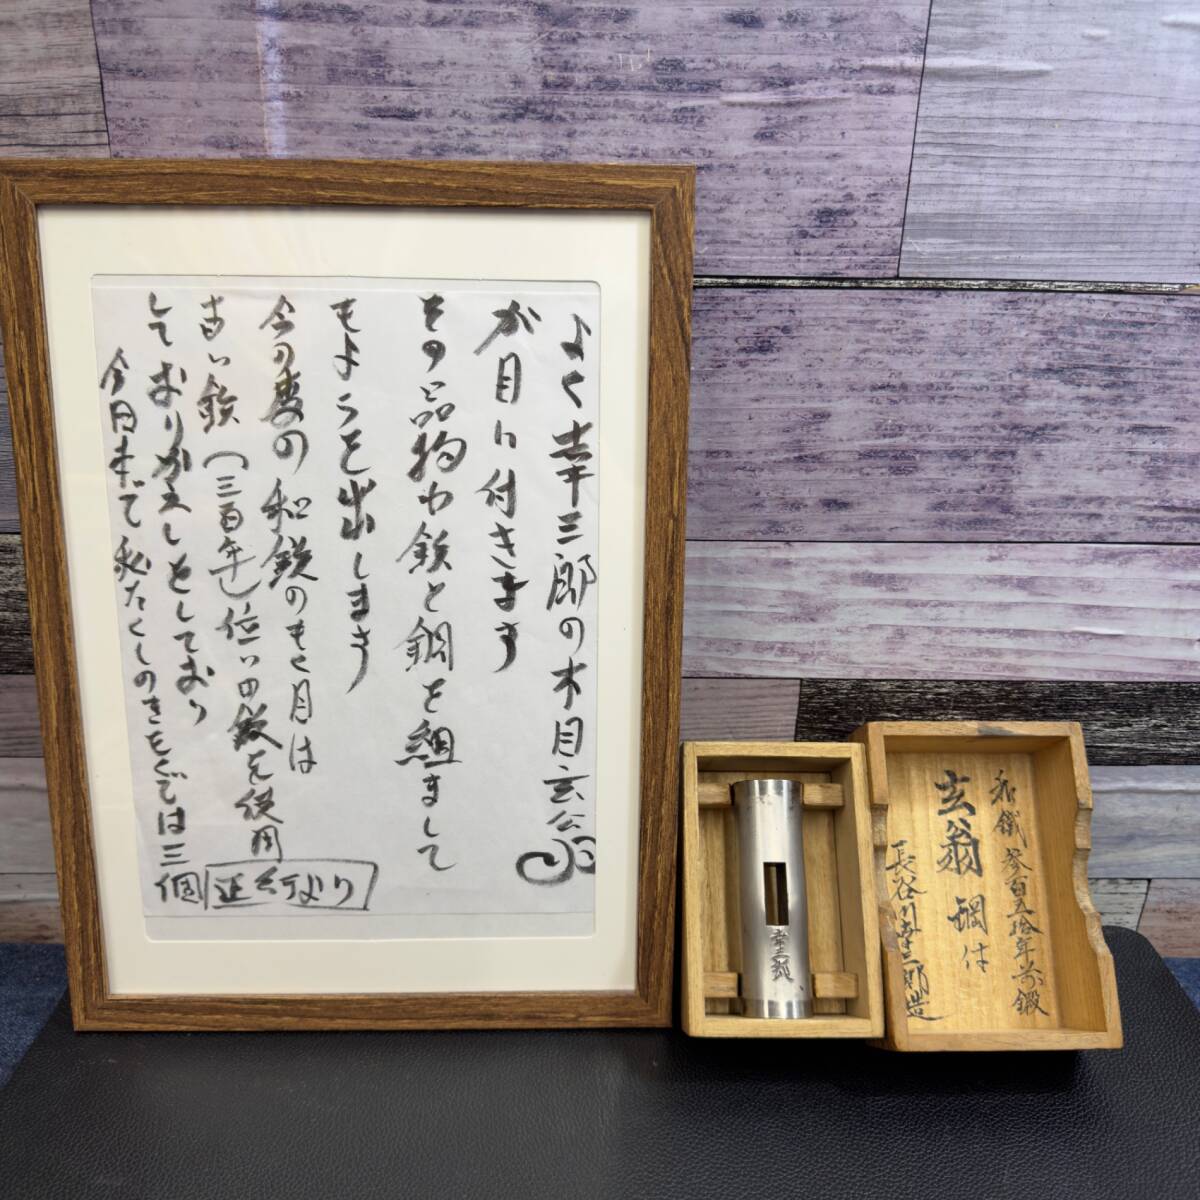 よく幸三郎の木目玄公
が目に付きます
その品物わ鉄と鋼を組まして
もようを出します
今の度の和鉄のもく目は
古い鉄(三百年)位いの鉄を使用
しており かえしをしており
今日まで私たくしのきをくでは三個
正行なり
和鐵参百五拾年前鍛
玄翁 鋼付
長谷川幸三郎造
幸三郎